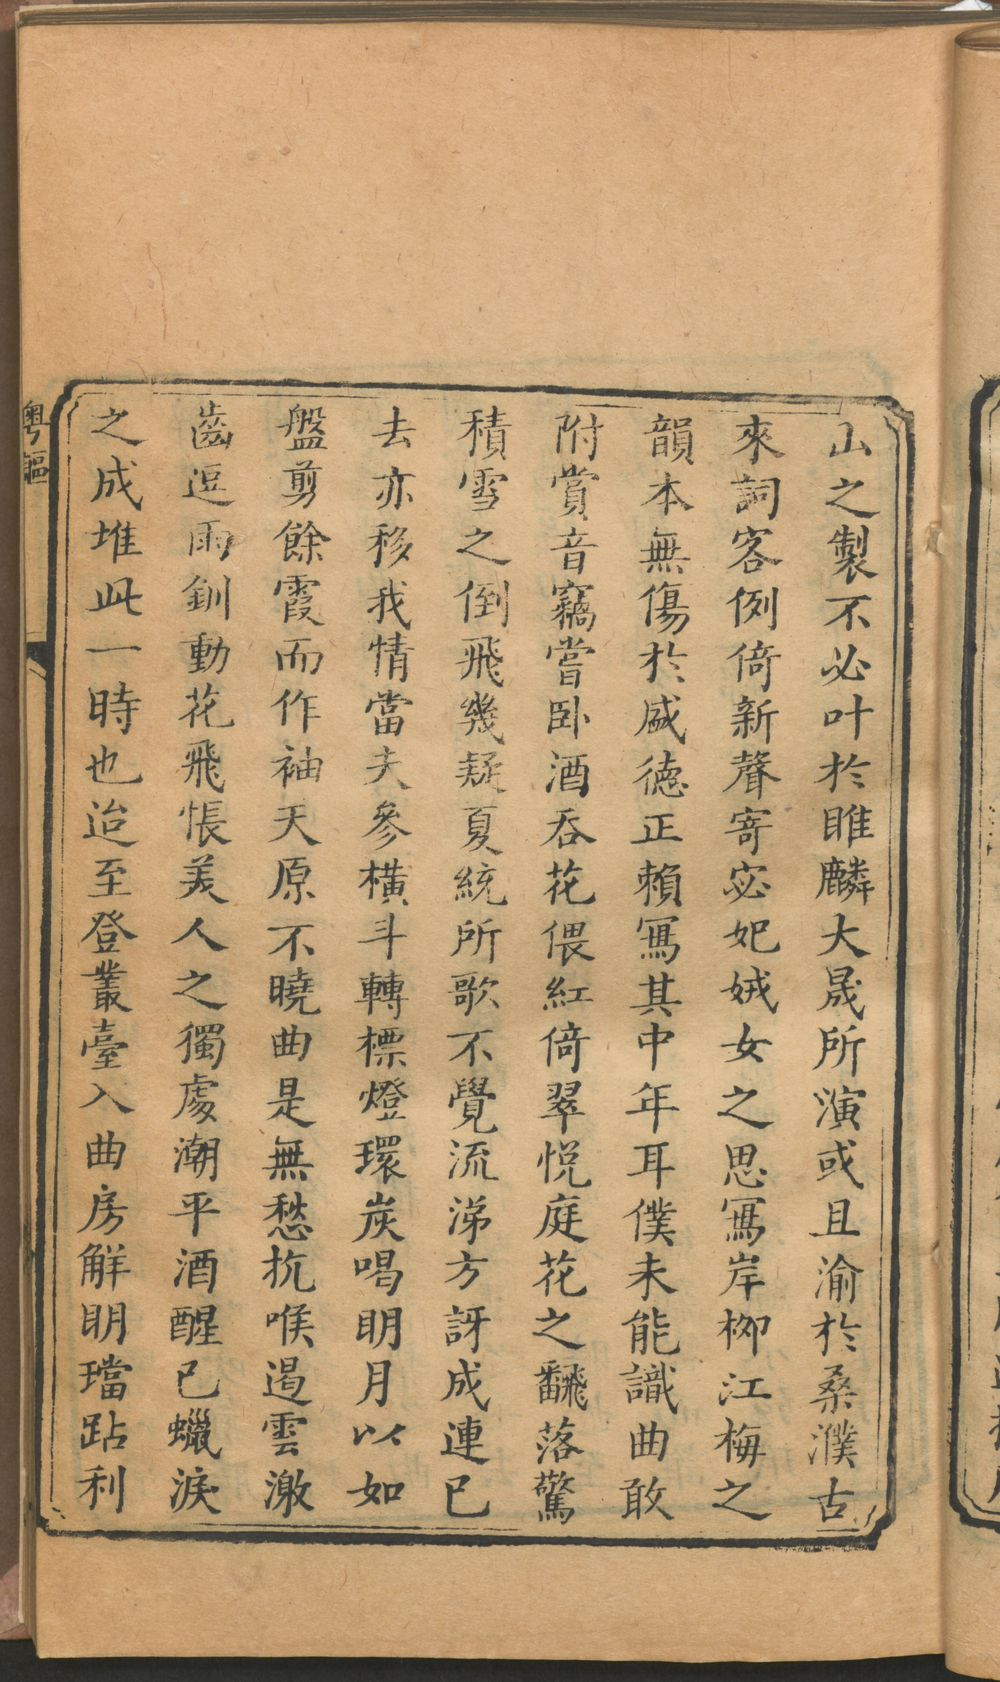 山之製不必叶於睢麟大晟所演或且渝於桑濮古
來詞客例倚新聲寄宓妃娀女之思寫岸柳江梅之
韻本無傷於盛德正賴寫其中年耳僕未能識曲敢
附賞音竊嘗卧酒吞花偎紅倚翠悅庭花之翻落驚
積雪之倒飛幾疑夏統所歌不覺流涕方訝成連已
去亦移我情當夫參橫斗轉標燈環炭唱明月以如
盤剪餘霞而作袖天原不曉曲是無愁抗喉遏雲激
齒逗雨釧動花飛悵美人之獨處潮平酒醒已蠟淚
之成堆此一時也迨至登叢臺入曲房解明璫跕利
粵謳